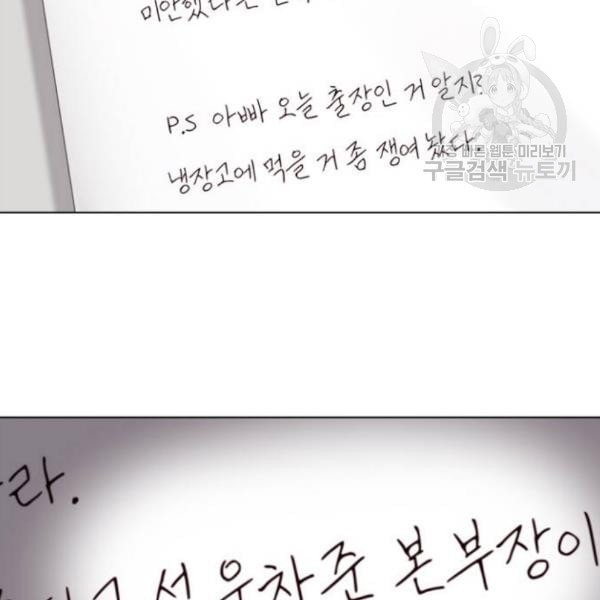 미안했다는
P.S 아빠 오늘 출장인 거 알지?
냉장고에 먹을 거 좀 쟁여 놨다.
가장 빠른 웹툰 미리보기
구글검색 뉴토끼
라.
선우차준 본부장이